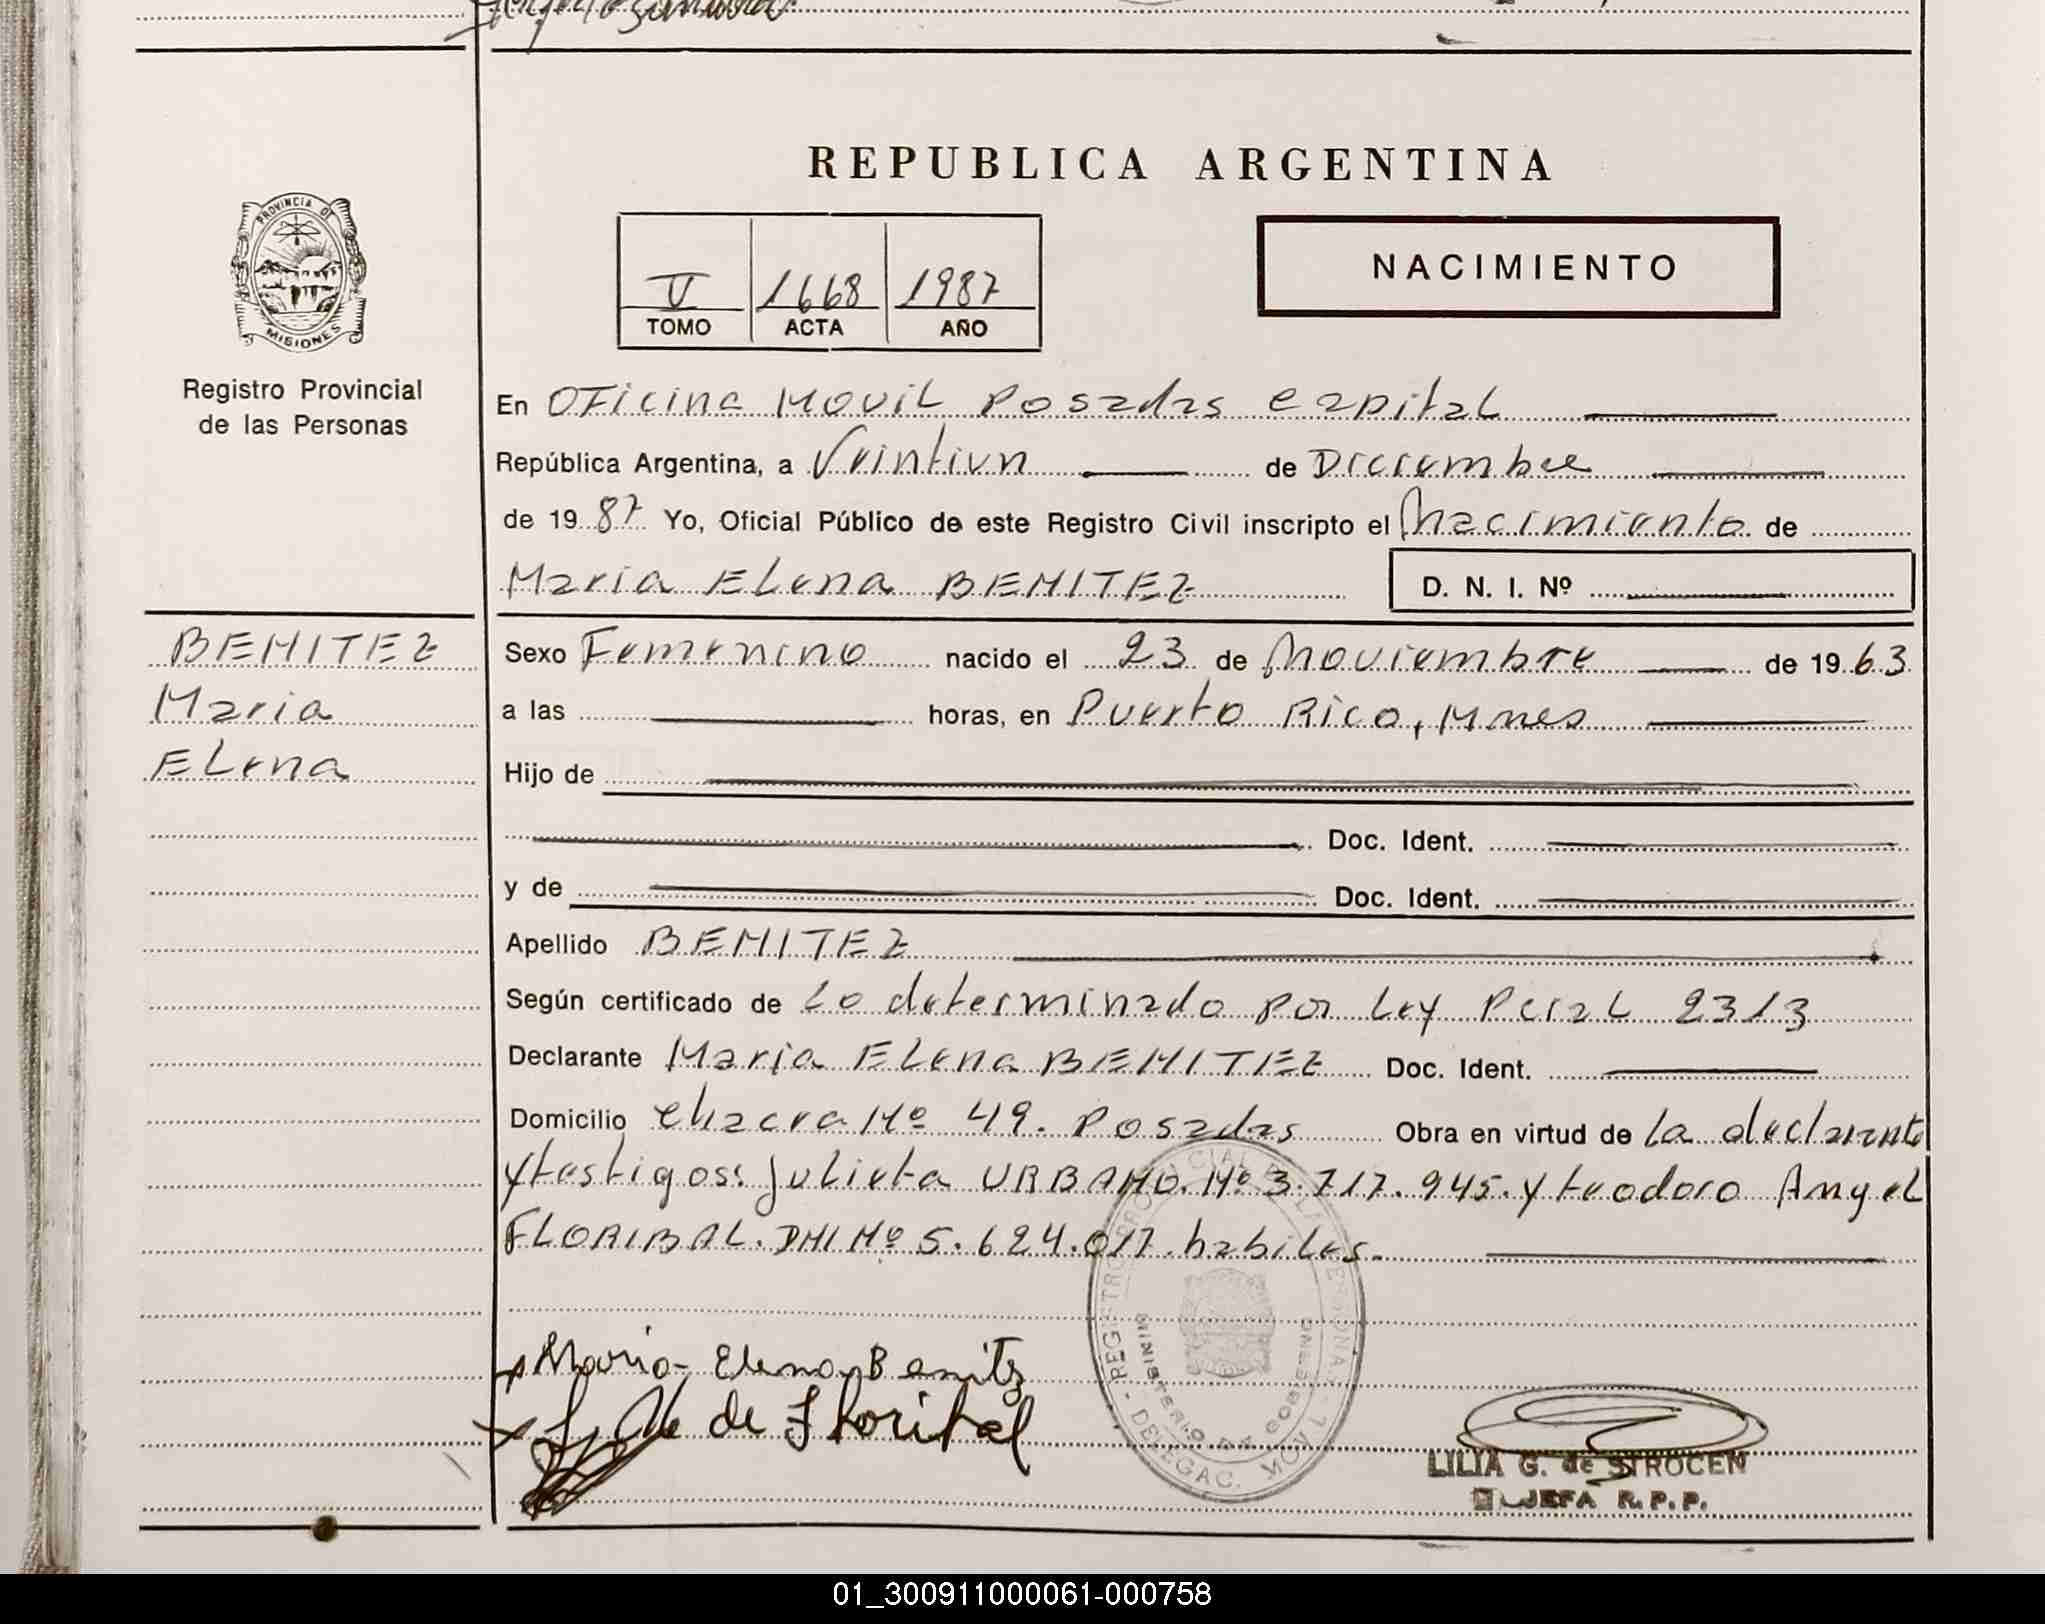 PROVINCIA DE
MISIONES
Registro Provincial
de las Personas
REPUBLICA ARGENTINA
V 1668 1987
TOMO ACTA AÑO
NACIMIENTO
En Oficina Movil Posadas Capital
República Argentina, a Veintiun de Diciembre
de 1987 Yo, Oficial Público de este Registro Civil inscripto el Nacimiento de
Maria Elena BENITEZ D. N. I. Nº
BENITEZ
Maria
Elena
Sexo Femenino nacido el 23 de Noviembre de 1963
a las horas, en Puerto Rico, Mnes
Hijo de
Doc. Ident.
y de Doc. Ident.
Apellido BENITEZ
Según certificado de Lo determinado por Ley Pcial 2313
Declarante Maria Elena BENITEZ Doc. Ident.
Domicilio Chacra Nº 49. Posadas Obra en virtud de la declarante
y testigos: Julieta URBANO. Nº 3.717.945. y teodoro Angel
FLORIBAL. DNI Nº 5.624.017. habiles.
Maria Elena Benitez
de Floribal
REGISTRO PROVINCIAL DE LAS PERSONAS
MINISTERIO DE GOBIERNO
DELEGAC. MOVIL
LILIA G. de STROCEN
JEFA R.P.P.
01_300911000061-000758